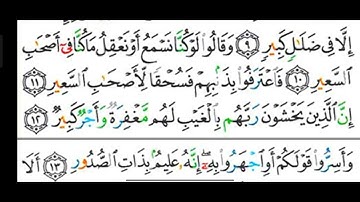 إِلَّا فِي ضَلَالٍ كَبِيرٍ ٩ وَقَالُوا لَوْ كُنَّا نَسْمَعُ أَوْ نَعْقِلُ مَا كُنَّا فِي أَصْحَابِ
السَّعِيرِ ١٠ فَاعْتَرَفُوا بِذَنبِهِمْ فَسُحْقًا لِأَصْحَابِ السَّعِيرِ ١١
إِنَّ الَّذِينَ يَخْشَوْنَ رَبَّهُم بِالْغَيْبِ لَهُم مَّغْفِرَةٌ وَأَجْرٌ كَبِيرٌ ١٢
وَأَسِرُّوا قَوْلَكُمْ أَوِ اجْهَرُوا بِهِ إِنَّهُ عَلِيمٌ بِذَاتِ الصُّدُورِ ١٣ أَلَا